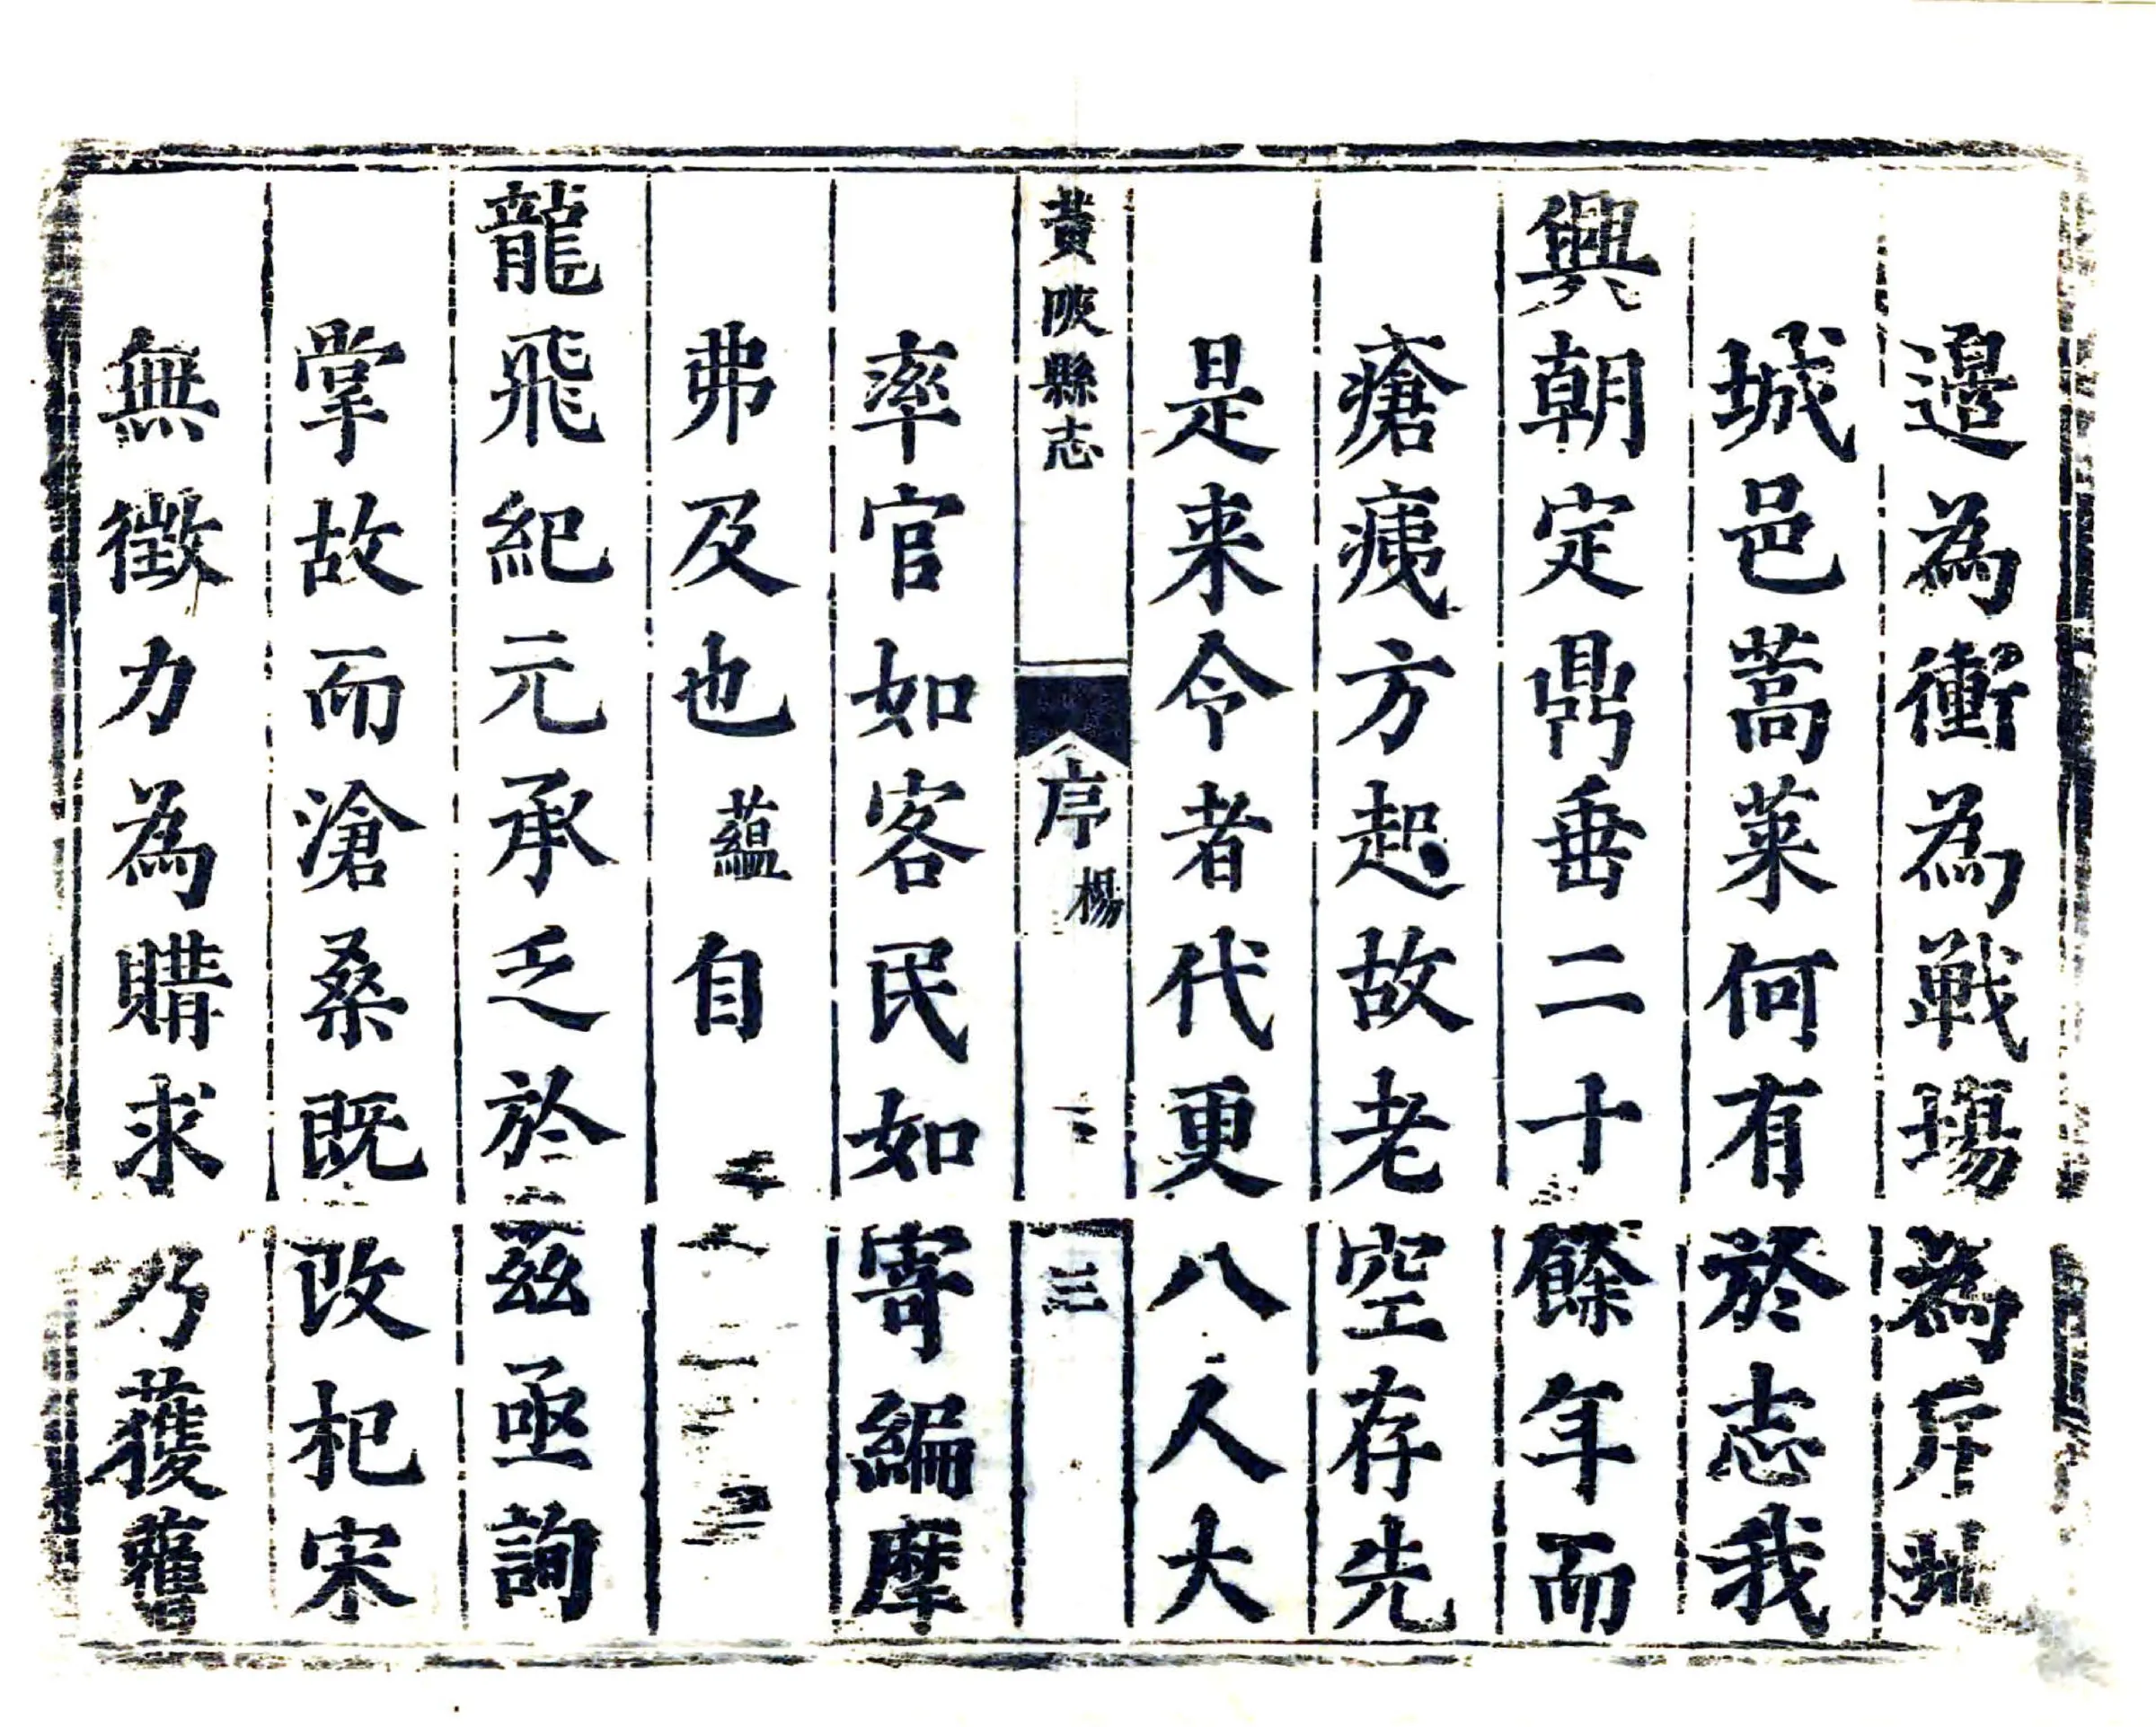 邉為衝為戰場為斥
城邑蒿萊何有於志我
興朝定鼎垂二十餘年而
瘡痍方起故老空存先
是来令者代更八人大
黃陂縣志 序 楊 三
率官如客民如寄編摩
弗及也蘊自
龍飛紀元承乏於茲亟詢
掌故而滄桑既改杞宋
無徵力為購求乃獲舊